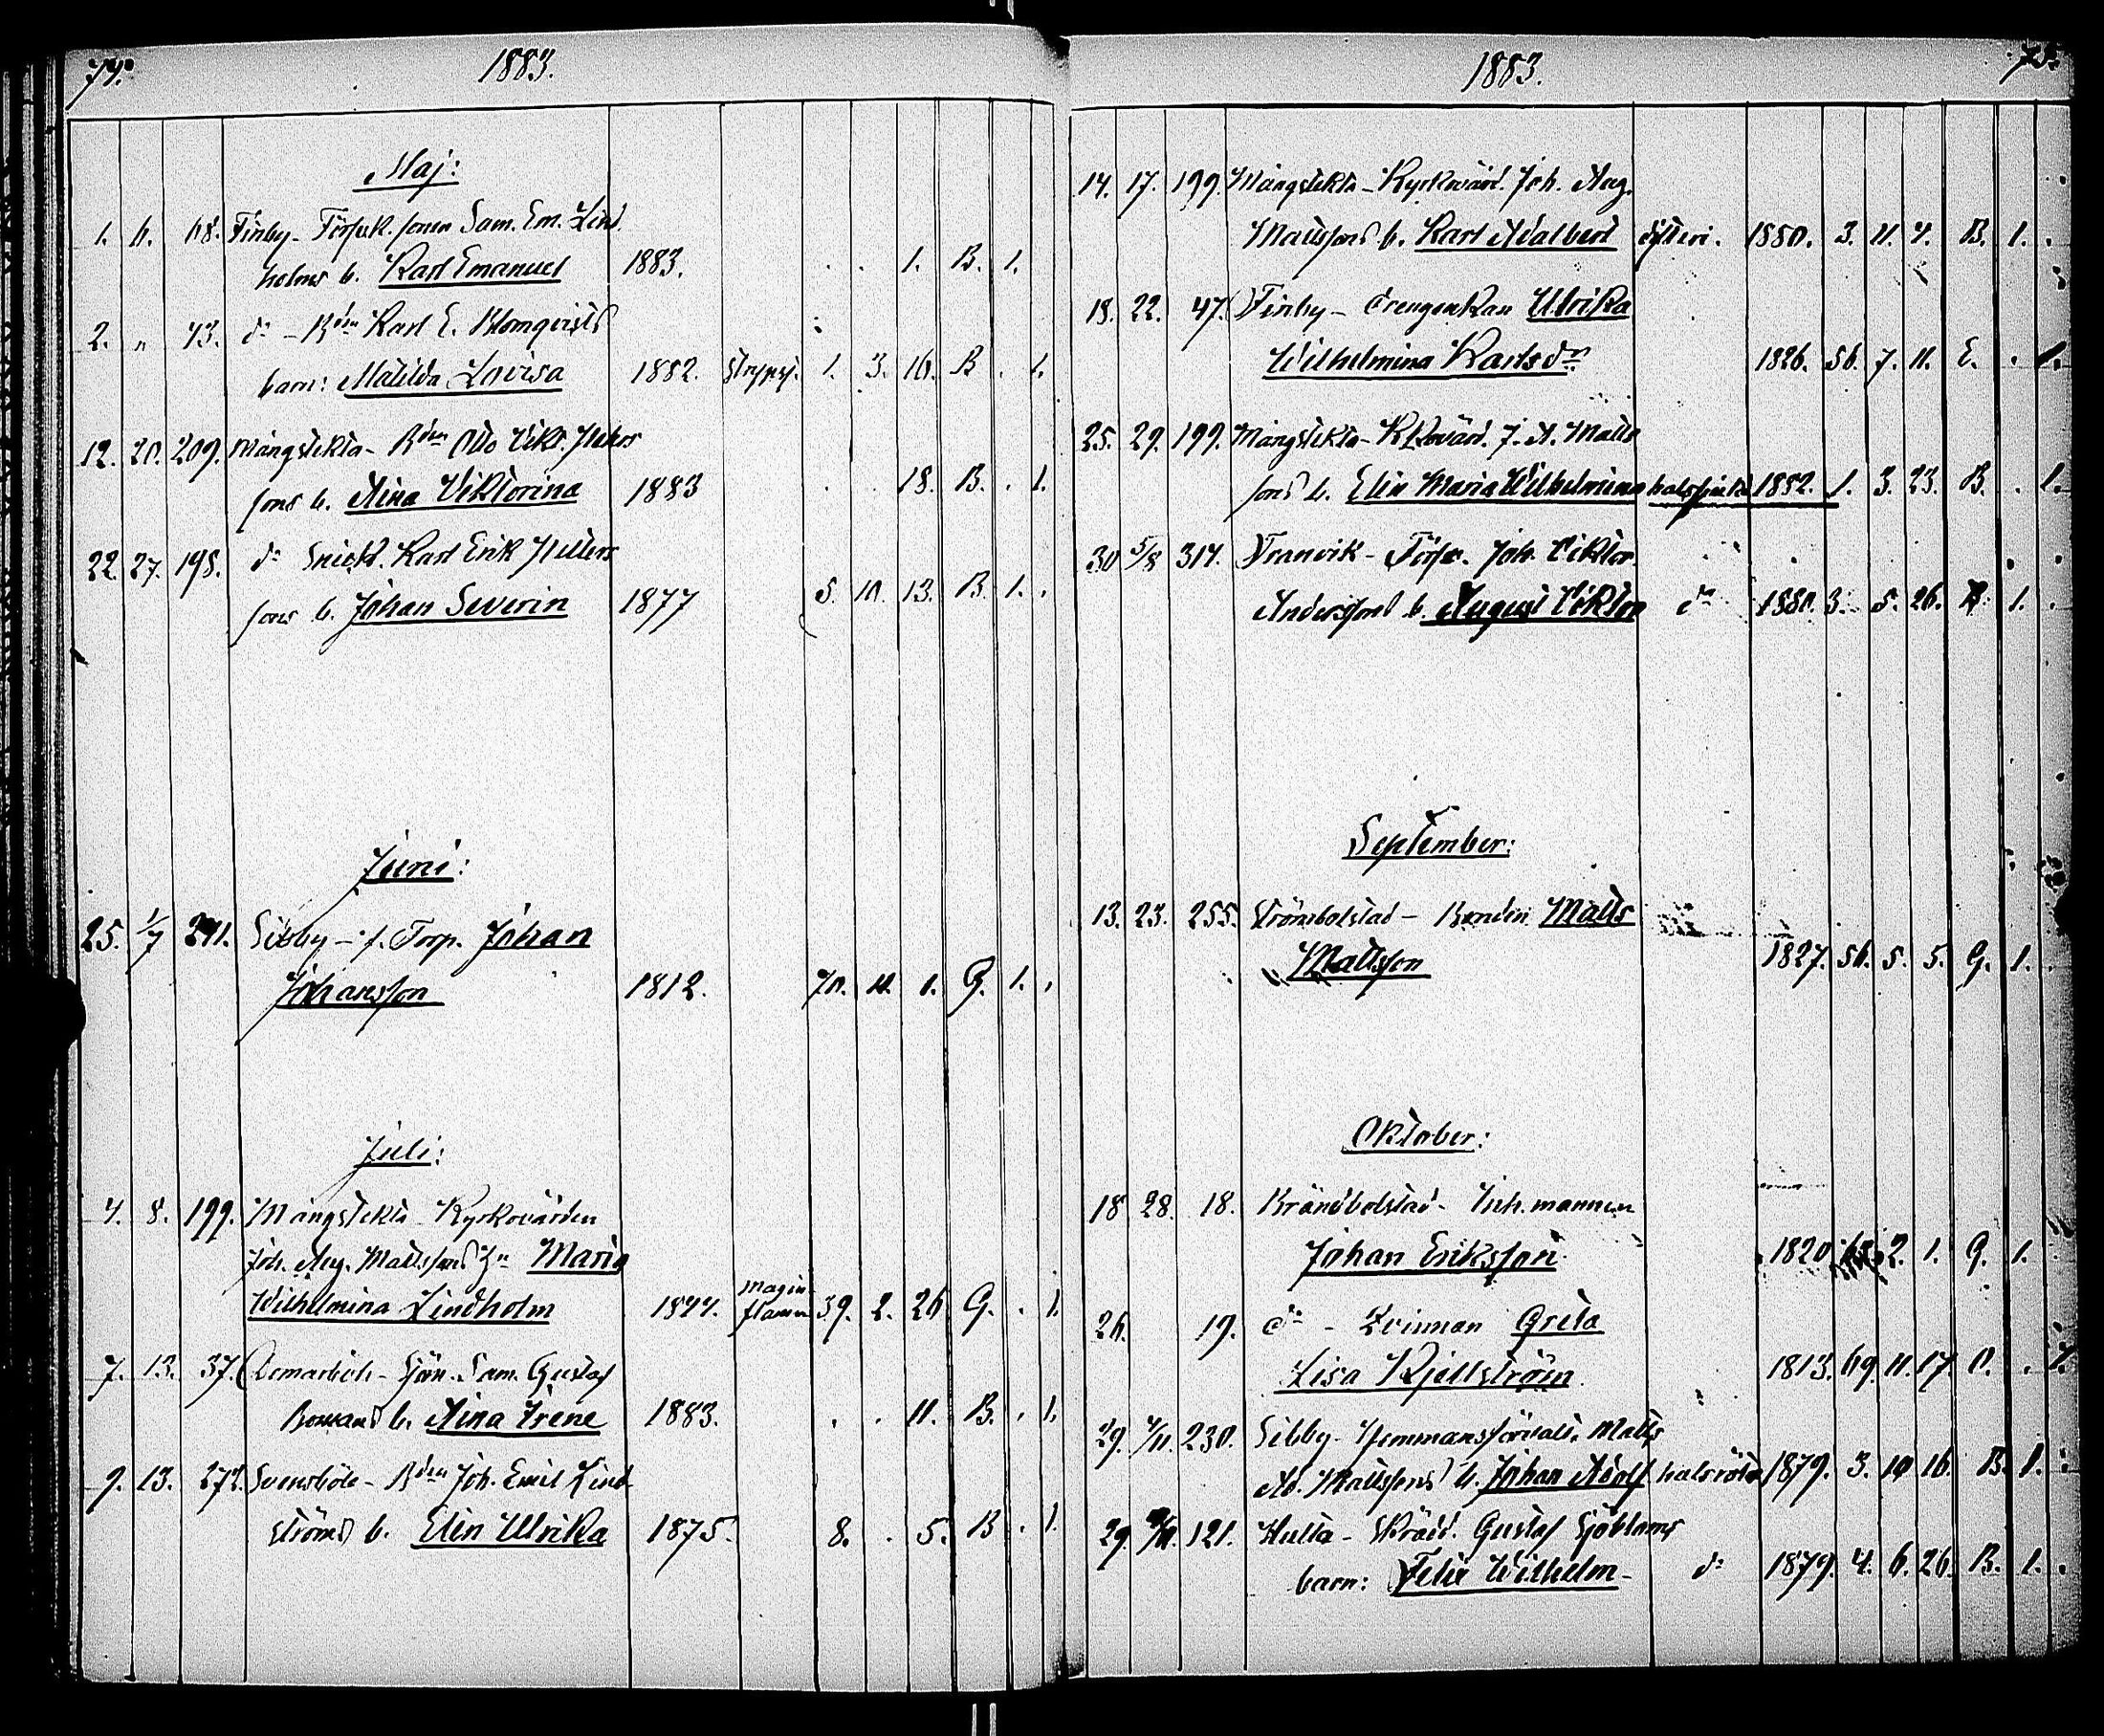 74.
1883.
Maj:
1. 6. 68. Finby - Torpek. sonen Sam. Em. Lind
holms b. Karl Emanuel 1883. . . 1. B. 1.
2. " 43. do - Bden Karl E. Blomqvists
barn: Matilda Lovisa 1882. strypsj. 1. 3. 16. B . 1.
12. 20. 209. Mångstekta - Bden Otto Vikt. Petters
sons b. Aina Viktorina 1883 . . 18. B. . 1.
22. 27. 198. do Snick. Karl Erik Petters
sons b. Johan Severin 1877 5. 10. 13. B. 1. .
Juni:
25. 1/7 241. Sibby - f. Torp. Johan
Johansson 1812. 70. 11. 1. G. 1. .
Juli:
4. 8. 199. Mångstekta - Kyrkovärden
Joh. Aug. Mattssons h:u Maria
Wilhelmina Lindholm 1844. magin-
flamm 39. 2. 26 G. . 1.
7. 13. 37. Domarböle - Sjöm. Sam. Gustaf
Bomans b. Aina Irene 1883. . . 11. B. . 1.
9. 13. 272. Svensböle - Bden Joh. Emil Lind-
ströms b. Elin Ulrika 1875. 8. . 5. B . 1.
1883.
75.
14. 17. 199. Mångstekta - Kyrkovärd. Joh. Aug.
Mattssons b. Karl Adalbert difteri. 1880. 3. 11. 4. B. 1. .
18. 22. 47. Finby - drengenkan Ulrika
Wilhelmina Karlsdr 1826. 56. 7. 11. E. . 1.
25. 29. 199. Mångstekta - K.kovärd. J. A. Matts
sons b. Elin Maria Wilhelmina halssjuka 1882. 1. 3. 23. B. . 1.
30 5/8 314. Tranvik - Torp. Joh. Viktor
Anderssons b. August Viktor do 1880. 3. 5. 26. B. 1. .
September:
13. 23. 255. Strömbolstad - Bonden Matts
Mattsson 1827. 56. 5. 5. G. 1. .
Oktober:
18 28. 18. Brändbolstad - Inh. mannen
Johan Eriksson 1820 2. 1. G. 1.
26. 19. do - Qvinnan Greta
Lisa Kjellström 1813. 69. 11. 17. O. . 1.
29. 4/11. 230. Sibby - Hemmansförvalt. Matts
Ad. Mattssons b. Johan Adolf halsröta 1879. 3. 10 16. B. 1. .
29. 4/11. 121. Hulta - Skrädd. Gustaf Sjöbloms
barn: Felix Wilhelm - do 1879. 4. 6. 26. B. 1. .